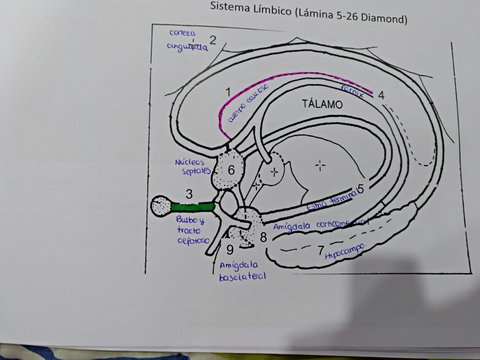 Sistema Límbico (Lámina 5-26 Diamond)
corteza
cingulada
2
1
cuerpo calloso
fornix
4
TÁLAMO
Núcleos
septales
6
3
Bulbo y
tracto
olfatorio
5
Estria terminal
Amígdala corticomedial
9
8
7
Hipocampo
Amígdala
basolateral